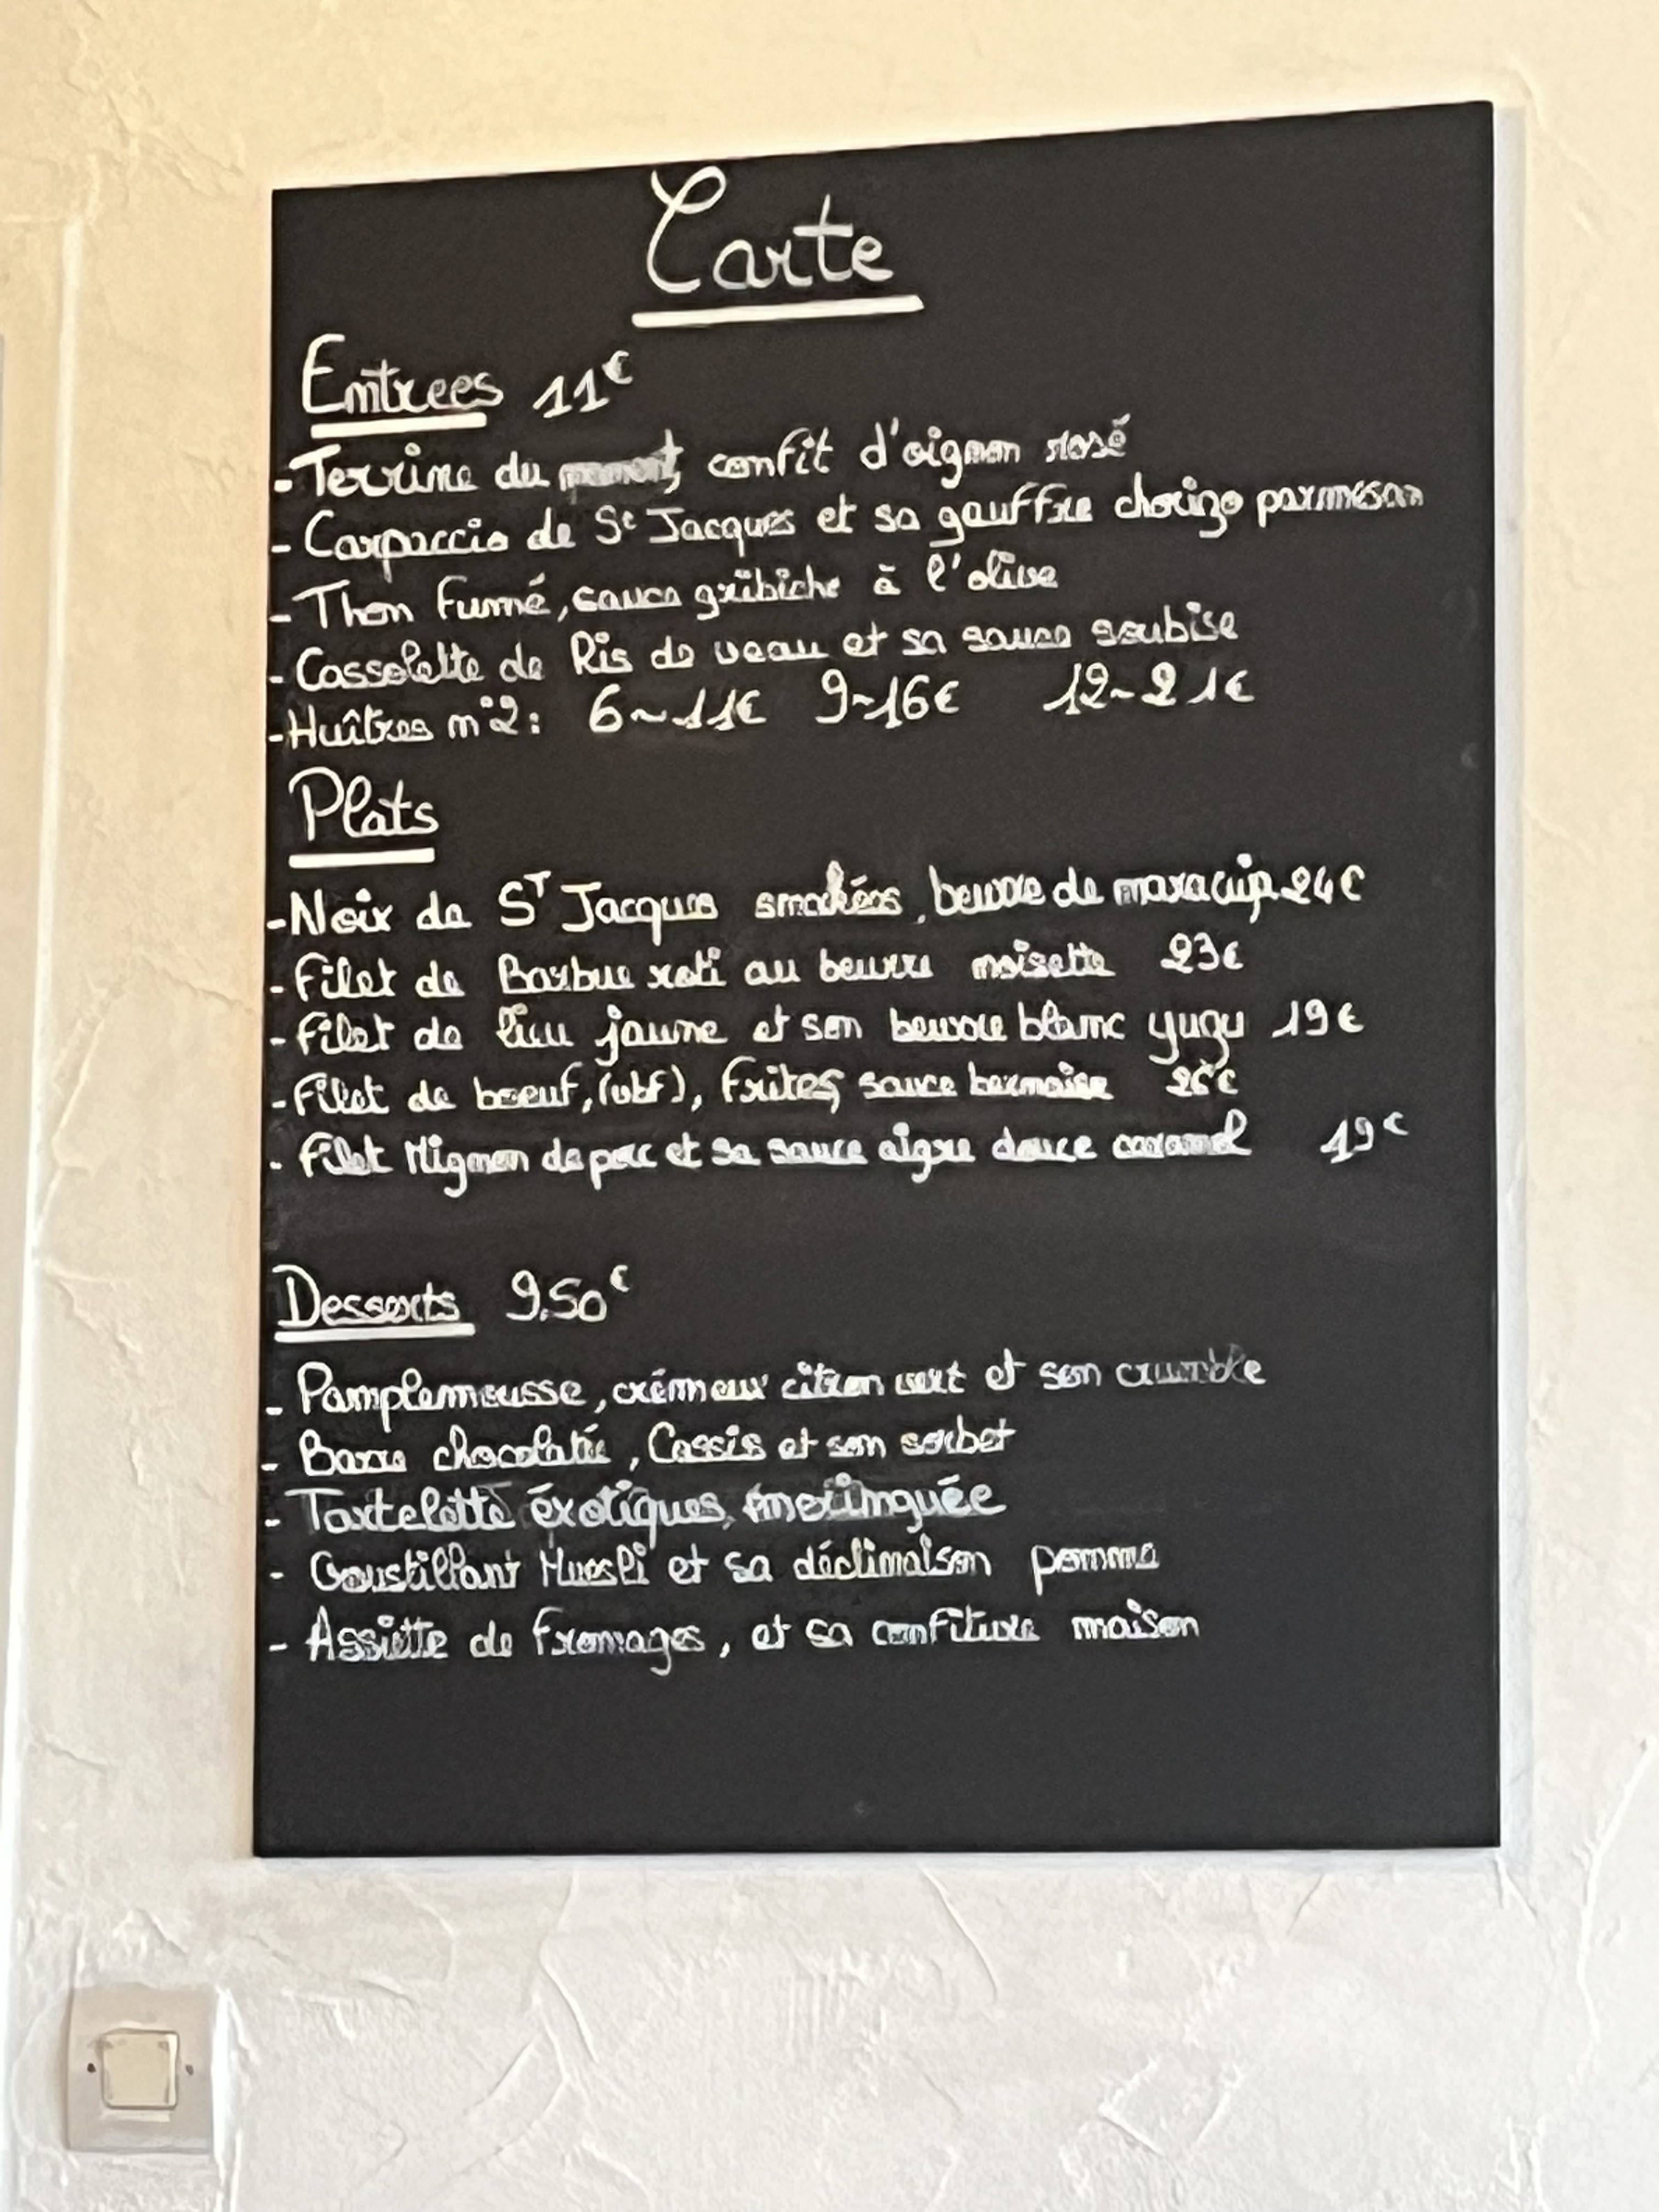 Carte
Entrees 11€
- Terrine du confit d'oignon rosé
- Carpaccio de St Jacques et sa gauffre chorizo parmesan
- Thon Fumé, sauce gribiche à l'olive
- Cassolette de Ris de veau et sa sauce soubise
- Huîtres n°2: 6~11€ 9~16€ 12~21€
Plats
- Noix de ST Jacques smockées, beurre de maracuja 24€
- Filet de Barbue roti au beurre noisette 23€
- Filet de lieu jaune et son beurre blanc yuzu 19€
- Filet de boeuf, (vbf), Frites, sauce bearnaise 26€
- Filet Mignon de porc et sa sauce aigre douce caramel 19€
Desserts 9.50€
- Pamplemousse, crémeux citron vert et son crumble
- Barre chocolatée, Cassis et son sorbet
- Tartelette éxotiques, meringuée
- Croustillant Muesli et sa déclinaison pomme
- Assiette de Fromages, et sa confiture maison